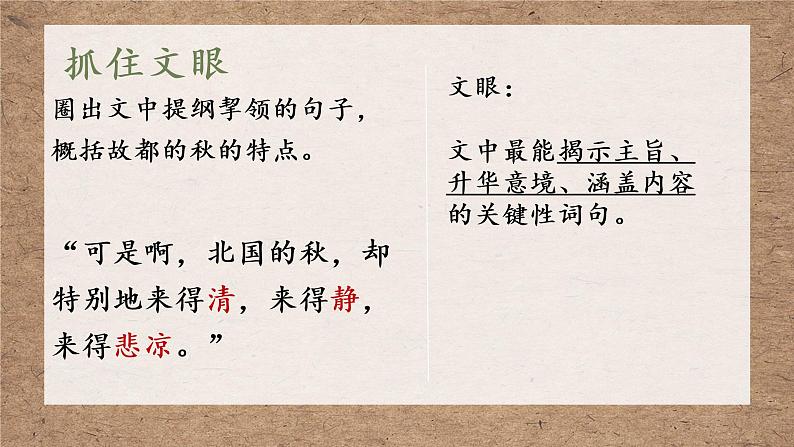 抓住文眼
圈出文中提纲挈领的句子，
概括故都的秋的特点。
“可是啊，北国的秋，却
特别地来得清，来得静，
来得悲凉。”
文眼：
文中最能揭示主旨、
升华意境、涵盖内容
的关键性词句。